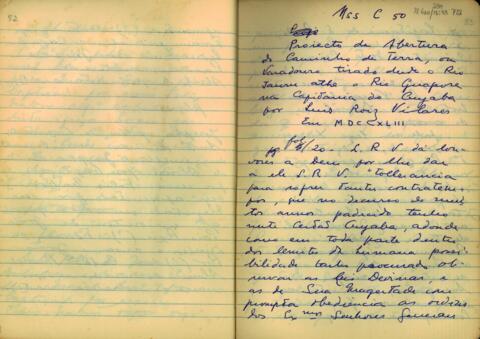 52
53
Mss C 50
Projecto da Abertura
do Caminho de Terra, ou
Varadouro tirado desde o Rio
Taurú athe o Rio Guaporé
na Capitania do Cuyabá
por Luis Roiz Vilares
Em MDCCXLIII
fol 1/20 - L. R. V. dá lou-
vores a Deus por lhe dar
a ele L. R. V. "tollerancia
para sofrer tantos contratem-
pos, que no decurso de mui-
tos annos padecido tenho
neste Certão Cuyabá, adonde
como em toda parte dentro
dos lemites da humana possi-
bilidade tenho procurado ob-
servar as Leis Devinas, e
as de Sua Magestade com
prompta obediencia as ordens
dos Exmos Senhores Generaes